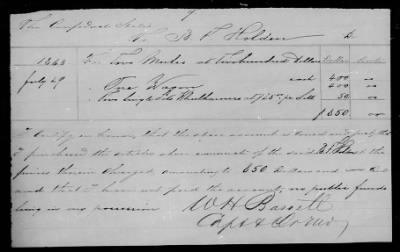 The Confederate States
To B F Holden Dr
1863 For Two Mules at two hundred Dollars Dollars Cents
July 29 each 400 00
" One Wagon 400 00
Two sets at 25 pr Sett 50 00
$850 00
I Certify on honor, that the above account is correct and just, that
I purchased the articles above enumerated of the said B F Holden at the
prices therein charged amounting to 850 Dollars and
and that I have not paid the account, no public funds
being in my possession
W H Barrett
Capt &